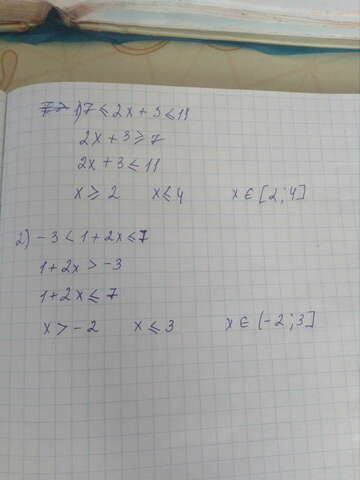 1) 7 ≤ 2x + 3 ≤ 11
2x + 3 ≥ 7
2x + 3 ≤ 11
x ≥ 2 x ≤ 4 x ∈ [2; 4]
2) -3 < 1 + 2x ≤ 7
1 + 2x > -3
1 + 2x ≤ 7
x > -2 x ≤ 3 x ∈ (-2; 3]